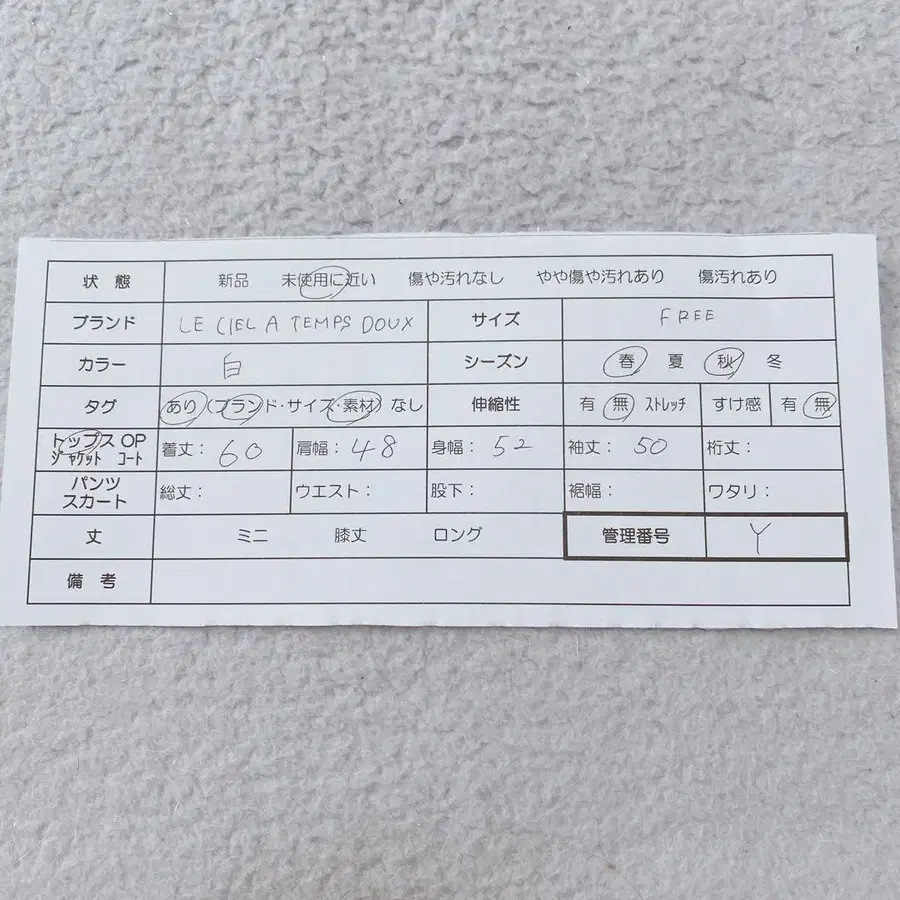 状態 新品 未使用に近い 傷や汚れなし やや傷や汚れあり 傷汚れあり
ブランド LE CIEL A TEMPS DOUX サイズ FREE
カラー 白 シーズン 春 夏 秋 冬
タグ あり(ブランド・サイズ・素材)なし 伸縮性 有 無 ストレッチ すけ感 有 無
トップス OP
ジャケット コート 着丈: 60 肩幅: 48 身幅: 52 袖丈: 50 裄丈:
パンツ
スカート 総丈: ウエスト: 股下: 裾幅: ワタリ:
丈 ミニ 膝丈 ロング 管理番号 Y
備考